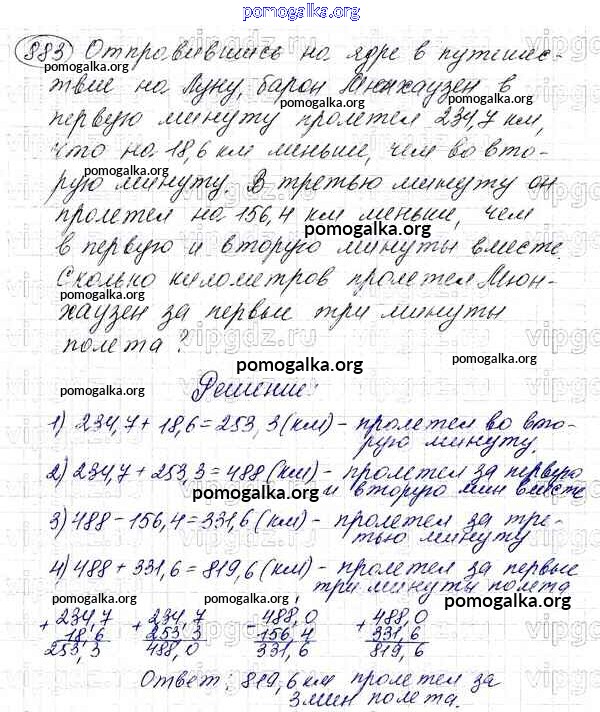 pomogalka.org
883 Отправившись на ядре в путешес-
твие на Луну, барон Мюнхаузен в
первую минуту пролетел 234,7 км,
что на 18,6 км меньше, чем во вто-
рую минуту. В третью минуту он
пролетел на 156,4 км меньше, чем
в первую и вторую минуты вместе.
Сколько километров пролетел Мюн-
хаузен за первые три минуты
полета?
pomogalka.org
Решение:
1) 234,7 + 18,6 = 253,3 (км) - пролетел во вто-
рую минуту
2) 234,7 + 253,3 = 488 (км) - пролетел за первую
и вторую мин вместе
3) 488 - 156,4 = 331,6 (км) - пролетел за тре-
тью минуту
4) 488 + 331,6 = 819,6 (км) - пролетел за первые
три минуты полета
+ 234,7 + 234,7 - 488,0 + 488,0
18,6 253,3 156,4 331,6
253,3 488,0 331,6 819,6
Ответ: 819,6 км пролетел за
3 мин полета.